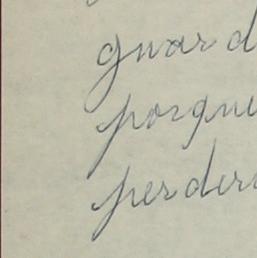 guard
porque
perder